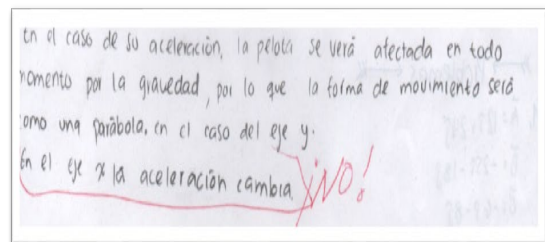 en el caso de su aceleración, la pelota se verá afectada en todo
momento por la gravedad, por lo que la forma de movimiento será
como una parábola, en el caso del eje y.
En el eje x la aceleración cambia ¡NO!